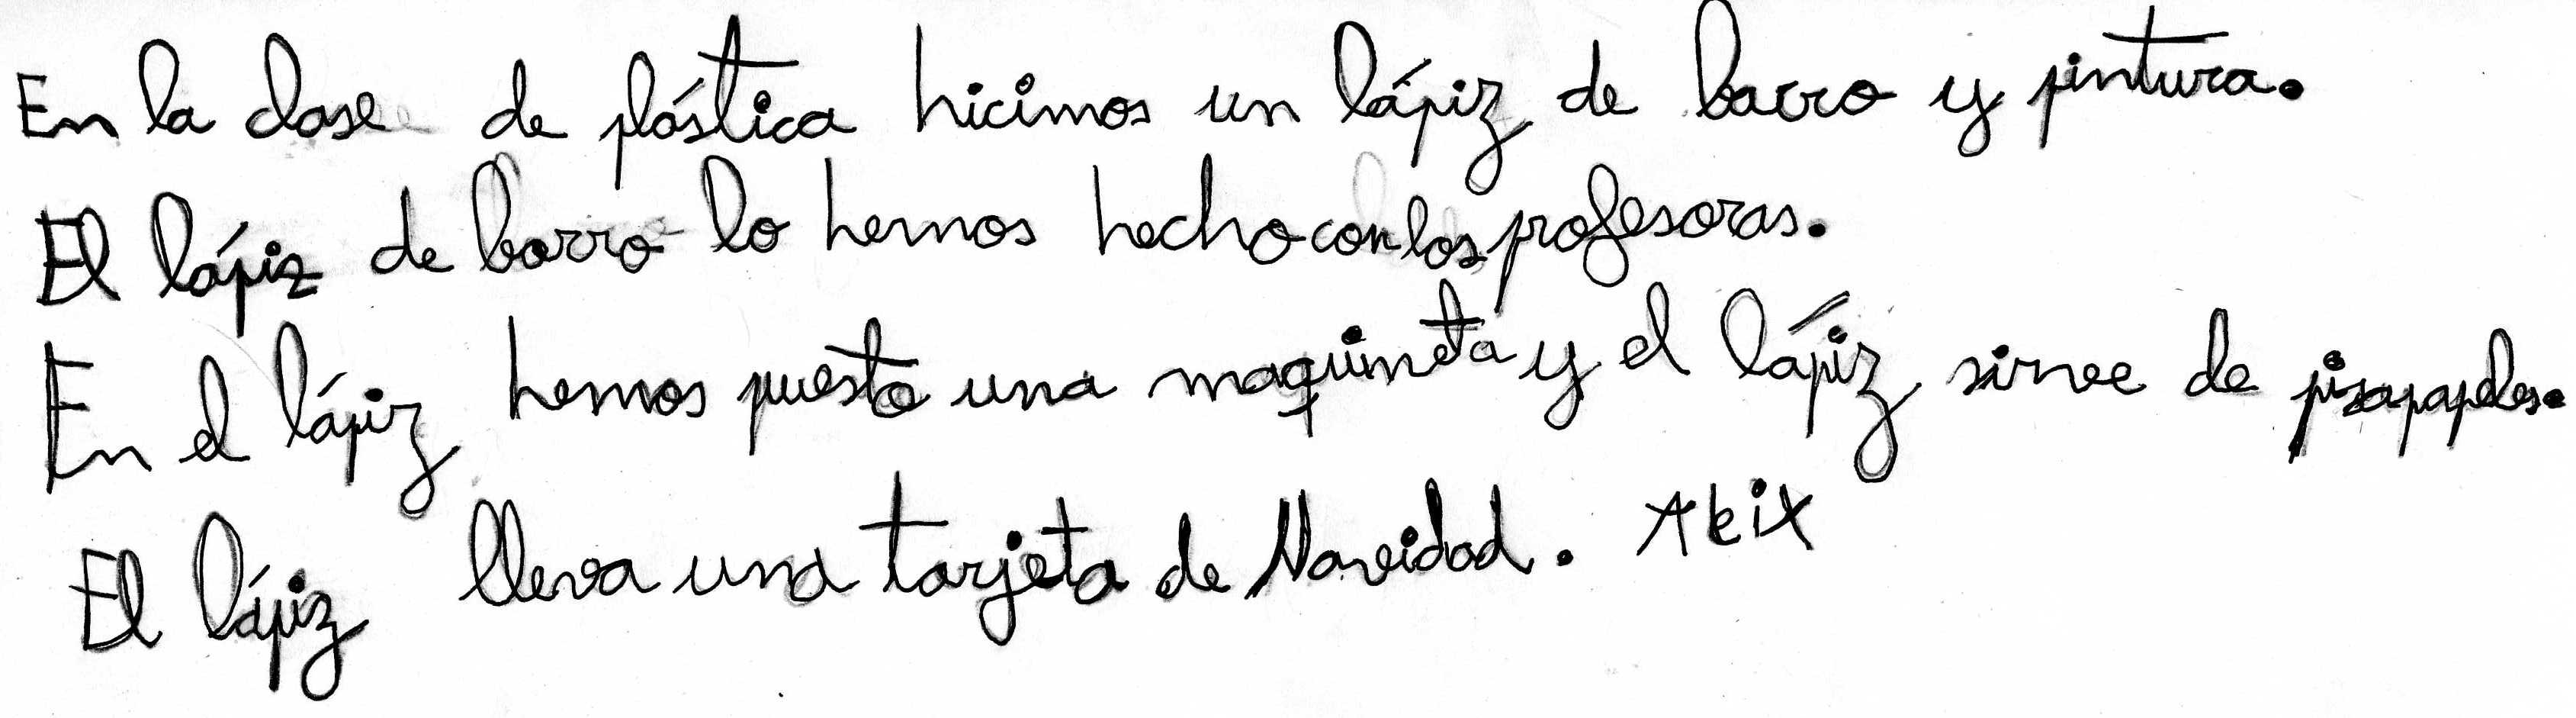 En la clase de plástica hicimos un lápiz de barro y pintura.
El lápiz de barro lo hemos hecho con los profesoras.
En el lápiz hemos puesto una maquineta y el lápiz sirve de pisapapeles.
El lápiz lleva una tarjeta de Navidad. Aleix